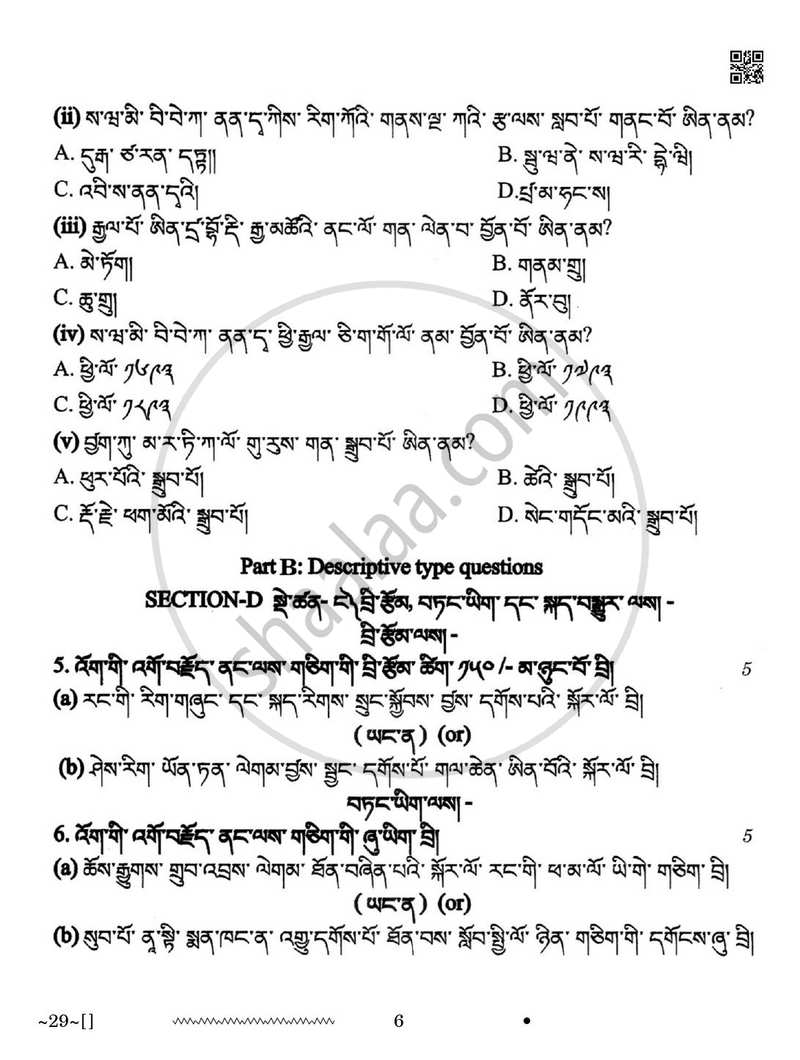 (ii) ས་ཝ་མི་ བི་བེ་ཀ་ ནན་ད་ཀིས་ རིག་ཀོའི་ གནས་ལྷ་ ཀའི་ རྩ་ལས་ སླབ་པོ་ གནང་བོ་ ཨིན་ནམ?
A. དུརྒ་ ཙ་རན་ དཏྟ།།
B. སྦྲུ་ཝ་ནེ་ ས་ཝ་རི་ དྷེ་ཝི།
C. འབི་ས་ནན་དའི།
D.པྲ་མ་ཧང་ས།
(iii) རྒྱལ་པོ་ ཨིན་དྲ་བྷོ་དི་ རྒྱ་མཚོའི་ ནང་ལོ་ གན་ ལེན་བ་ བྱོན་བོ་ ཨིན་ནམ?
A. མེ་ཏོག།
B. གནམ་གྲུ།
C. ཆུ་གྲུ།
D. ནོར་བུ།
(iv) ས་ཝ་མི་ བི་བེ་ཀ་ ནན་ད་ ཕྱི་རྒྱལ་ ཅི་ག་གོ་ལོ་ ནམ་ བྱོན་བོ་ ཨིན་ནམ?
A. ཕྱི་ལོ་ ༡༦༩༣
B. ཕྱི་ལོ་ ༡༧༩༣
C. ཕྱི་ལོ་ ༡༨༩༣
D. ཕྱི་ལོ་ ༡༩༩༣
(v) བྲག་ཀུ་ མ་ར་ཏི་ཀ་ལོ་ གུ་རུས་ གན་ སྒྲུབ་པོ་ ཨིན་ནམ?
A. ཕུར་པོའི་ སྒྲུབ་པོ།
B. ཚེའི་ སྒྲུབ་པོ།
C. རྡོ་རྗེ་ ཕག་མོའི་ སྒྲུབ་པོ།
D. སེང་གདོང་མའི་ སྒྲུབ་པོ།
Part B: Descriptive type questions
SECTION-D སྡེ་ཚན- ང༽ བྲི་རྩོམ, བཏང་ཡིག་ དང་ སྐད་བསྒྱུར་ ལས། -
བྲི་རྩོམ་ལས། -
5. འོག་གི་ འགོ་བརྗོད་ ནང་ལས་ གཅིག་གི་ བྲི་རྩོམ་ ཚིག་ ༡༥༠ /- མ་ཉུང་བོ་ བྲི། 5
(a) རང་གི་ རིག་གཞུང་ དང་ སྐད་རིགས་ སྲུང་སྐྱོབས་ བྱས་ དགོས་པའི་ སྐོར་ལོ་ བྲི།
( ཡང་ན ) (or)
(b) ཤེས་རིག་ ཡོན་ཏན་ ལེགམ་བྱས་ སྦྱང་ དགོས་པོ་ གལ་ཆེན་ ཨིན་བོའི་ སྐོར་ལོ་ བྲི།
བཏང་ཡིག་ལས། -
6. འོག་གི་ འགོ་བརྗོད་ ནང་ལས་ གཅིག་གི་ ཞུ་ཡིག་ བྲི། 5
(a) ཆོས་རྒྱུགས་ གྲུབ་འབྲས་ ལེགམ་ ཐོན་བཞིན་པའི་ སྐོར་ལོ་ རང་གི་ ཕ་མ་ལོ་ ཡི་གེ་ གཅིག་ བྲི།
( ཡང་ན ) (or)
(b) སུབ་པོ་ ནཱ་སྟི་ སྨན་ཁང་ན་ འགྱུ་དགོས་པོ་ ཐོན་བས་ སློབ་སྤྱི་ལོ་ ཉིན་ གཅིག་གི་ དགོངས་ཞུ་ བྲི།
~29~[]
6
shaalaa.com